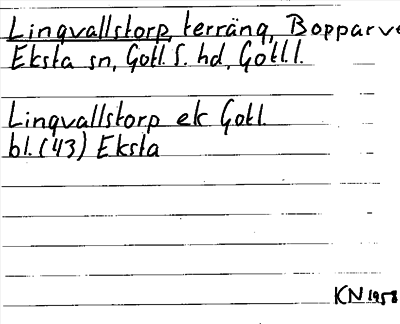 Lingvallstorp, terräng, Bopparve
Eksta sn, Gotl. S. hd, Gotl. l.
Lingvallstorp ek Gotl.
bl. (43) Eksta
KN 1958